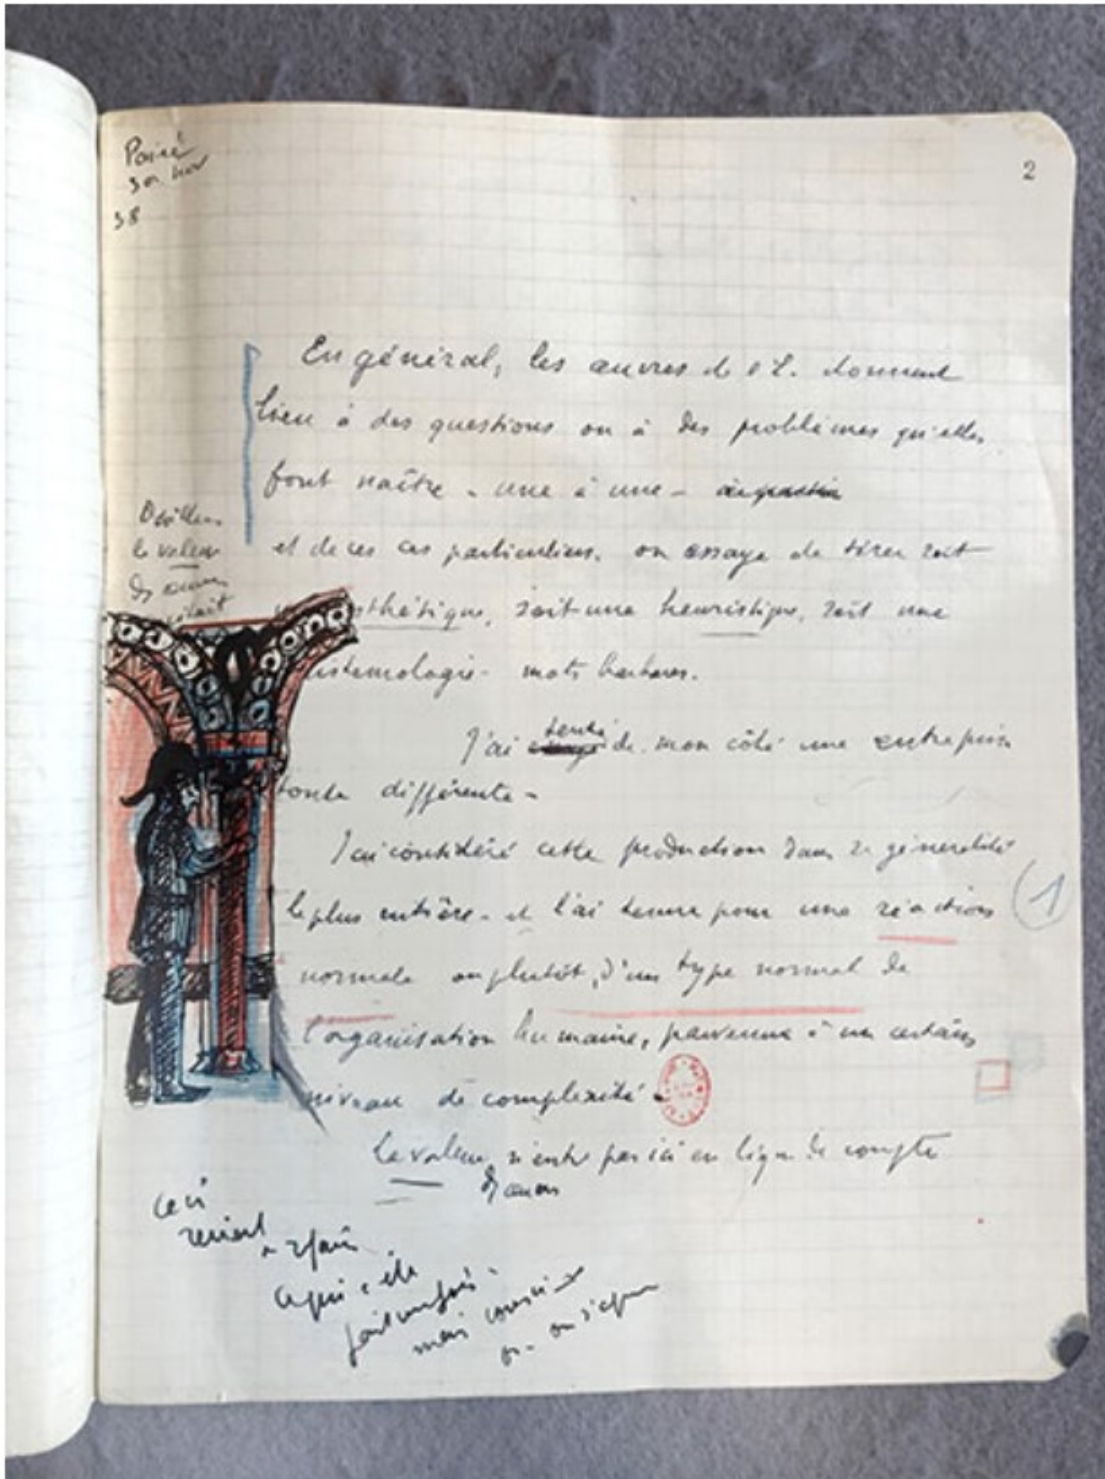 2
38
En général, les œuvres de l'E. donnent
lieu à des questions ou à des problèmes qu'elles
font naître - une à une -
et de ces cas particuliers, on essaye de tirer soit
esthétique, soit une heuristique, soit une
istémologie - mots barbares.
J'ai tenté de mon côté une entreprise
toute différente -
J'ai considéré cette production dans sa généralité
la plus entière - et l'ai tenue pour une réaction
normale ou plutôt, d'un type normal de
l'organisation humaine, parvenue à un certain
niveau de complexité -
La valeur n'entre pas ici en ligne de compte
des œuvres
D'ailleurs
la valeur
des œuvres
1
Ceci
revient
à refaire
ce qui a été
mais